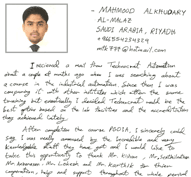 - MAHMOOD ALKHUDARY
AL-MALAZ
SAUDI ARABIA, RIYADH
I recieved a mail from Technocrat Automation
about a couple of months ago when I was searching about
a course in the industrial automation. Since then I was
comparing it with other institutes which within the same
teaching but eventually I decided Technocrat would be the
best option based on the lab facilities and the accreditation
they achieved lately.
After completing the course PGDIA, I sincerely would
say I was really amazed by the incredible and very
knowledgable staff they have got and I would like to
take this opportunity to thank Mr.
Mr. Mr. Lokesh and Mr. Karthik for their
cooperation, help and support throughout the whole period